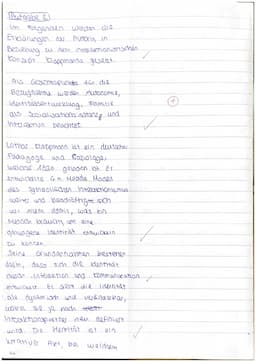 Aufgabe 2)
Im Folgenden werden die
Erfahrungen der Autorin in
Beziehung zu dem interaktionistischen
Konzept Krappmanns gesetzt.
Als Gesichtspunkte für die
Bezugnahme werden Autonomie,
Identitätsentwicklung, Familie
als Sozialisationsinstanz und
Integration beachtet.
Lothar Krappmann ist ein deutscher
Pädagoge und Soziologe,
welcher 1936 geboren ist. Er
entwickelte G.H. Meads Modell
des symbolischen Interaktionismus
weiter und beschäftigte sich
mit mehr damit, was ein
Mensch braucht, um eine
gelungene Identität entwickeln
zu können.
Seine Grundannahmen bestehen
darin, dass sich die Identität
durch Interaktion und Kommunikation
entwickelt. Er sieht die Identität
als dynamisch und veränderbar,
wobei sie je nach
Interaktionspartner neu definiert
wird. Die Identität ist ein
kreativer Akt, bei welchem